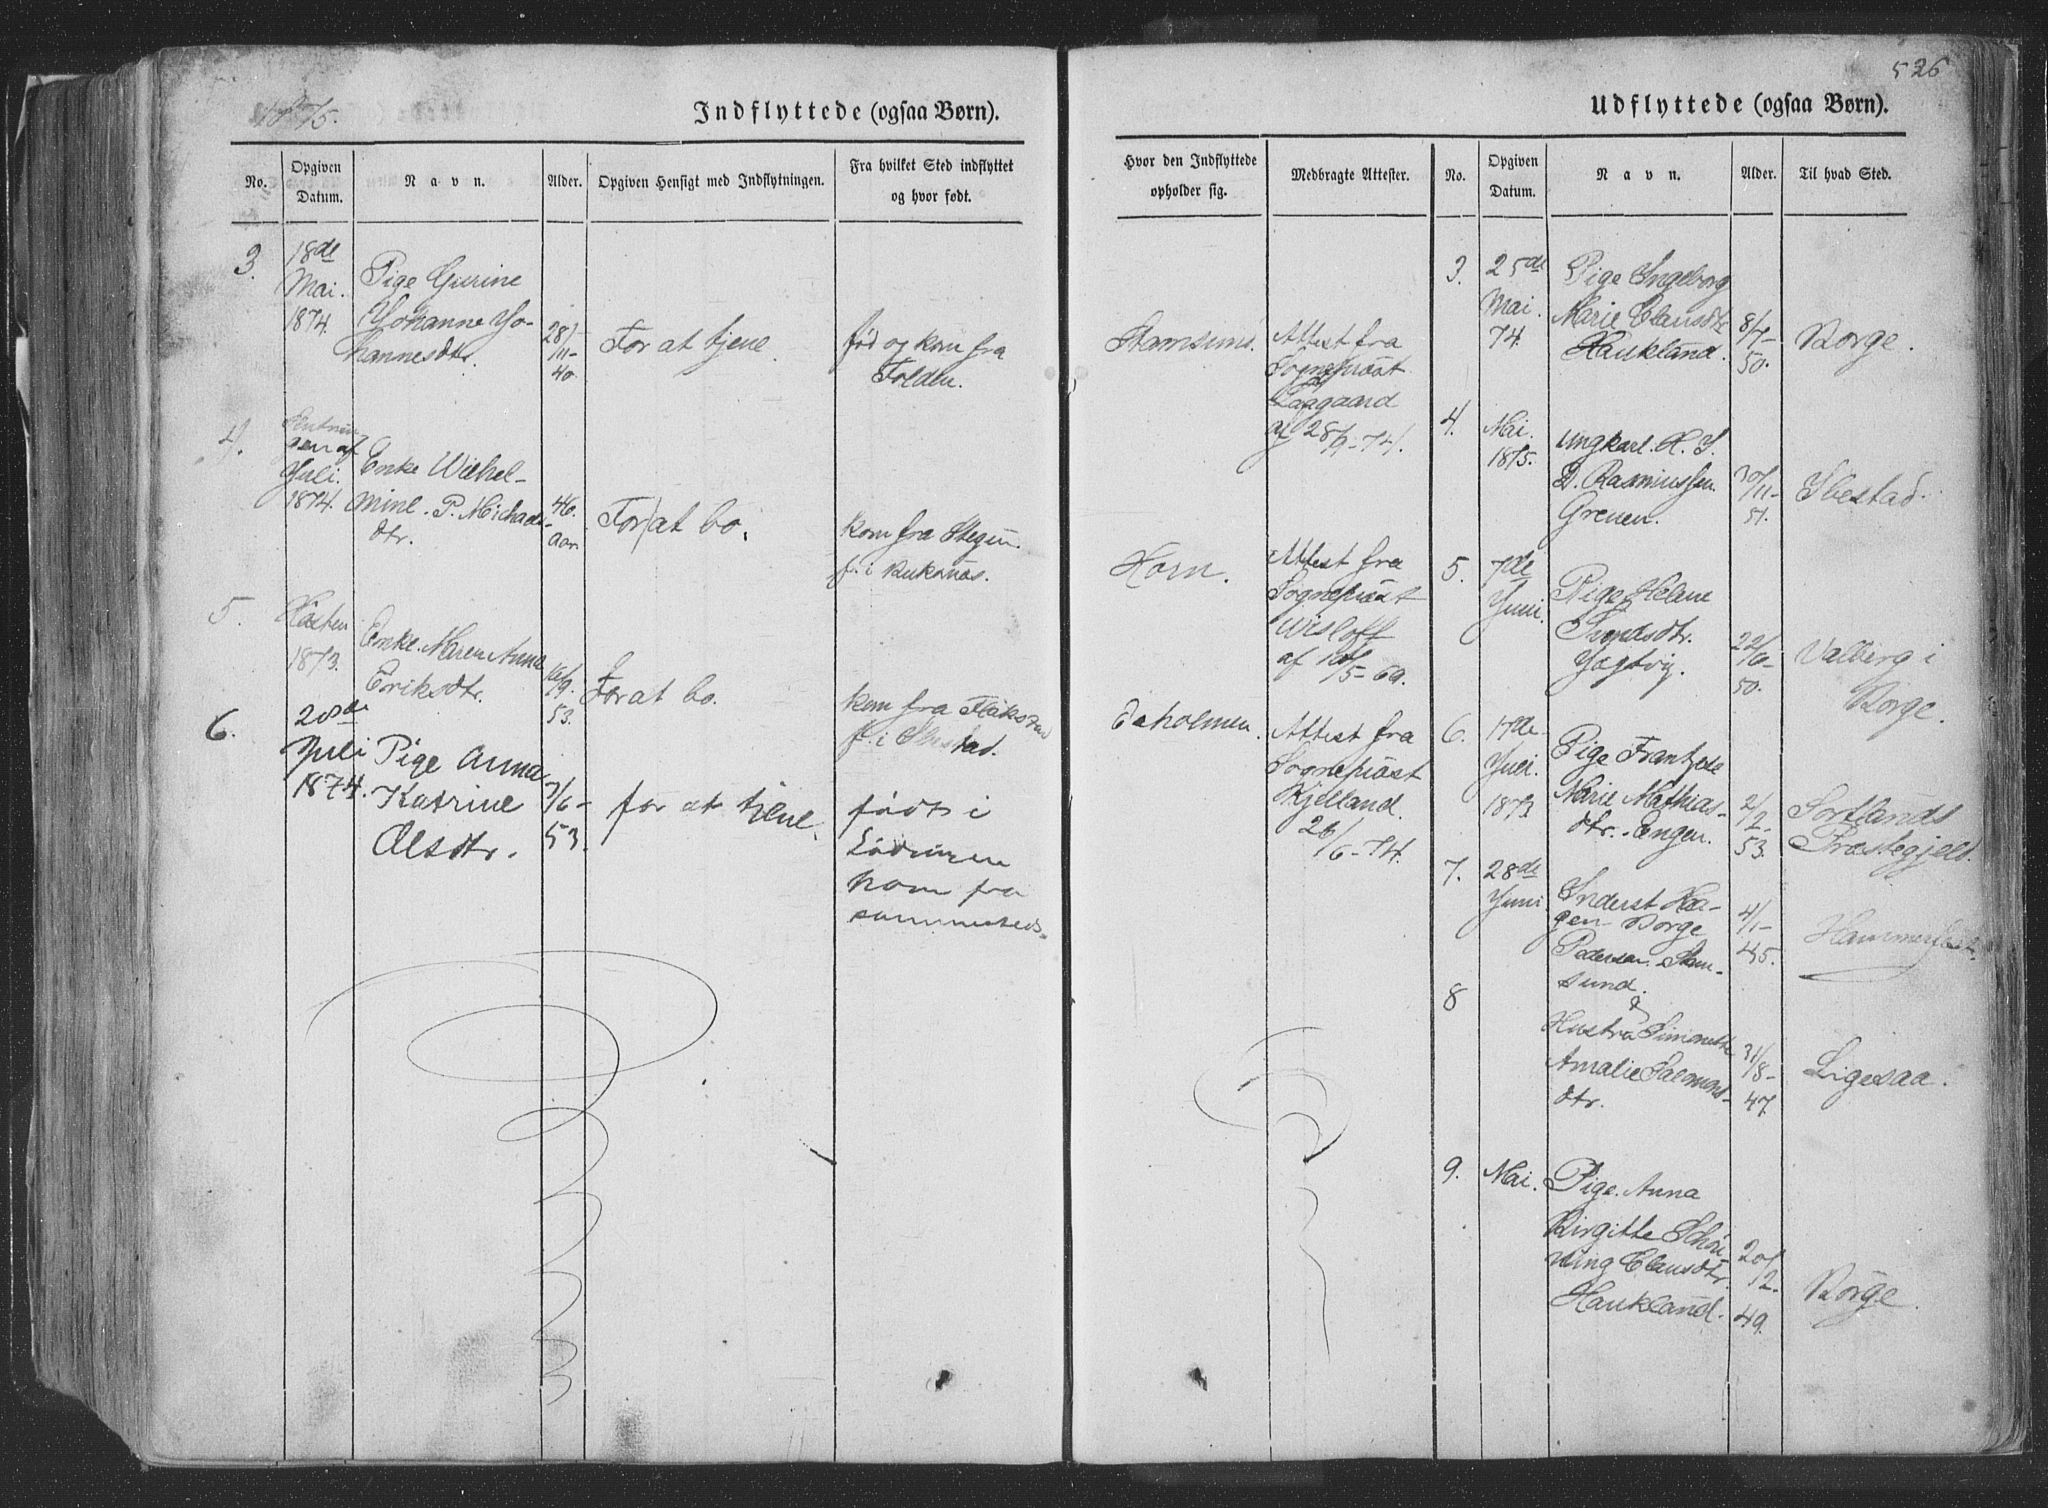 526
1875.
Indflyttede (ogsaa Børn).
No.
Opgiven
Datum.
Navn.
Alder.
Opgiven Hensigt med Indflytningen.
Fra hvilket Sted indflyttet
og hvor født.
3.
18de
Mai.
1874.
Pige Gurine
Johanne Jo-
hannesdtr.
28/
11-
40.
For at tjene.
fød og kom fra
Folden.
4.
gen af
Juli.
1874.
Enke Wilhel-
mine. P. Michaels-
dtr.
46.
Aar.
For at bo.
kom fra Stegen.
f. i Buksnæs.
5.
Høsten
1873.
Enke Maren Anna
Eriksdtr.
16/
9.
53.
For at bo.
kom fra
f. i
6.
20de
Juli
1874.
Pige Anna
Katrine
Olsdtr.
7/
6-
53.
for at tjene.
født i
Lødingen
kom fra
sammesteds.
Udflyttede (ogsaa Børn).
Hvor den Indflyttede
opholder sig.
Medbragte Attester.
No.
Opgiven
Datum.
Navn.
Alder.
Til hvad Sted.
Stamsund.
Attest fra
Sognepræst
Aagaard
af 28/9-74.
Horn.
Attest fra
Sognepræst
Wisløff
af 10/5-69.
Æsholmen.
Attest fra
Sognepræst
Kjelland.
26/6-74.
3.
25de
Mai.
74.
Pige Ingeborg
Marie Clausdtr.
Haukland.
8/7-
50.
Borge.
4.
Mai.
1875.
Ungkarl. H. J.
D. Rasmussen.
Greuen.
30/
11-
51.
Ibestad.
5.
7de
Juni.
Pige Helene
Jagtvig.
22/
6-
50.
Valberg i
Borge.
6.
17de
Juli.
1873
Pige Frantzene
Marie Mathias-
dtr. Engen.
2/
2-
53.
Sortlands
Præstegjeld.
7.
28de
Juni
Inderst Haa-
gen Borge
Pedersen. Stam-
sund.
4/
1-
45.
Hammerfest.
8
&
Hustru Simonette
Amalie Salomons-
dtr.
31/
8-
47.
Ligesaa.
9.
Mai.
Pige. Anna
Birgitte Schøn-
ning Clausdtr.
Haukland.
20/
12-
49.
Borge.